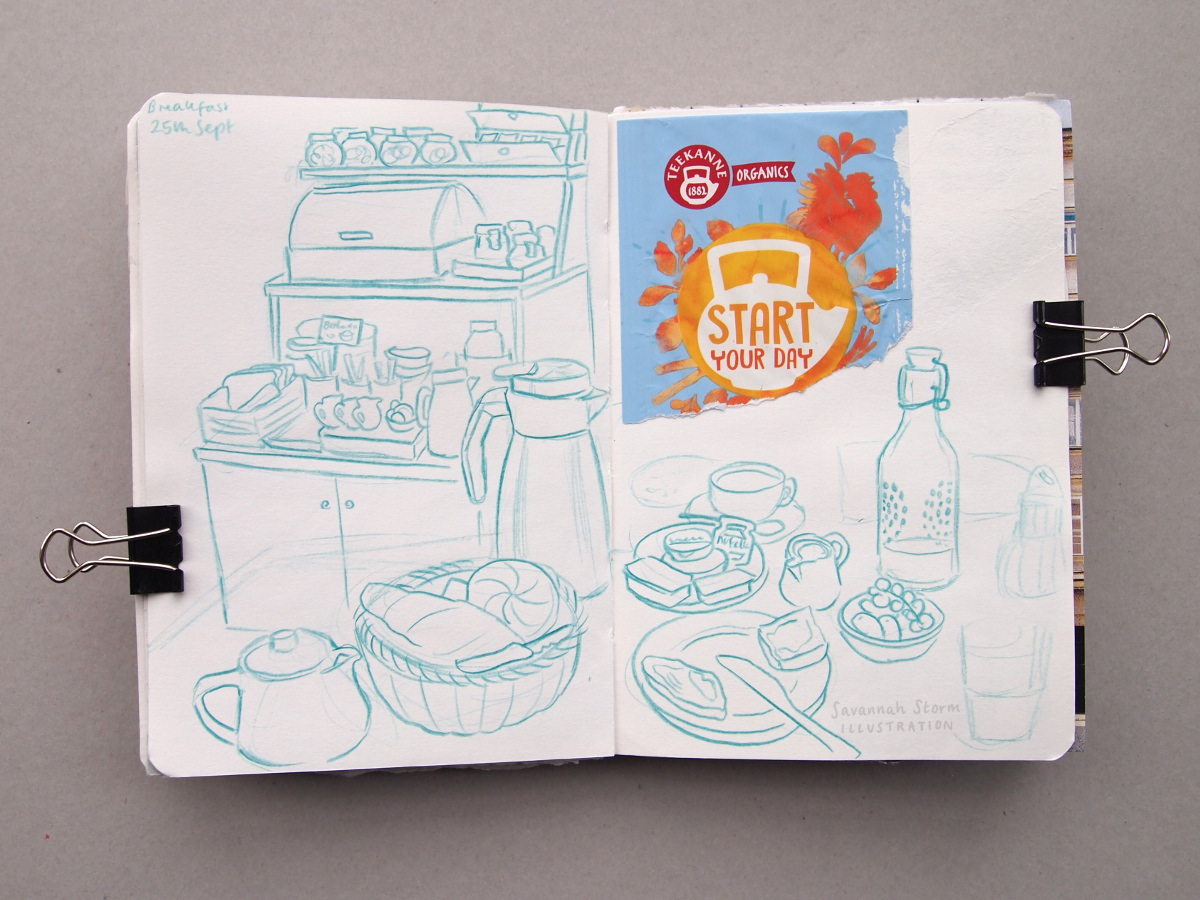 Breakfast
25th Sept
TEEKANNE
1882
ORGANICS
START
YOUR DAY
Nutella
Savannah Storm
ILLUSTRATION